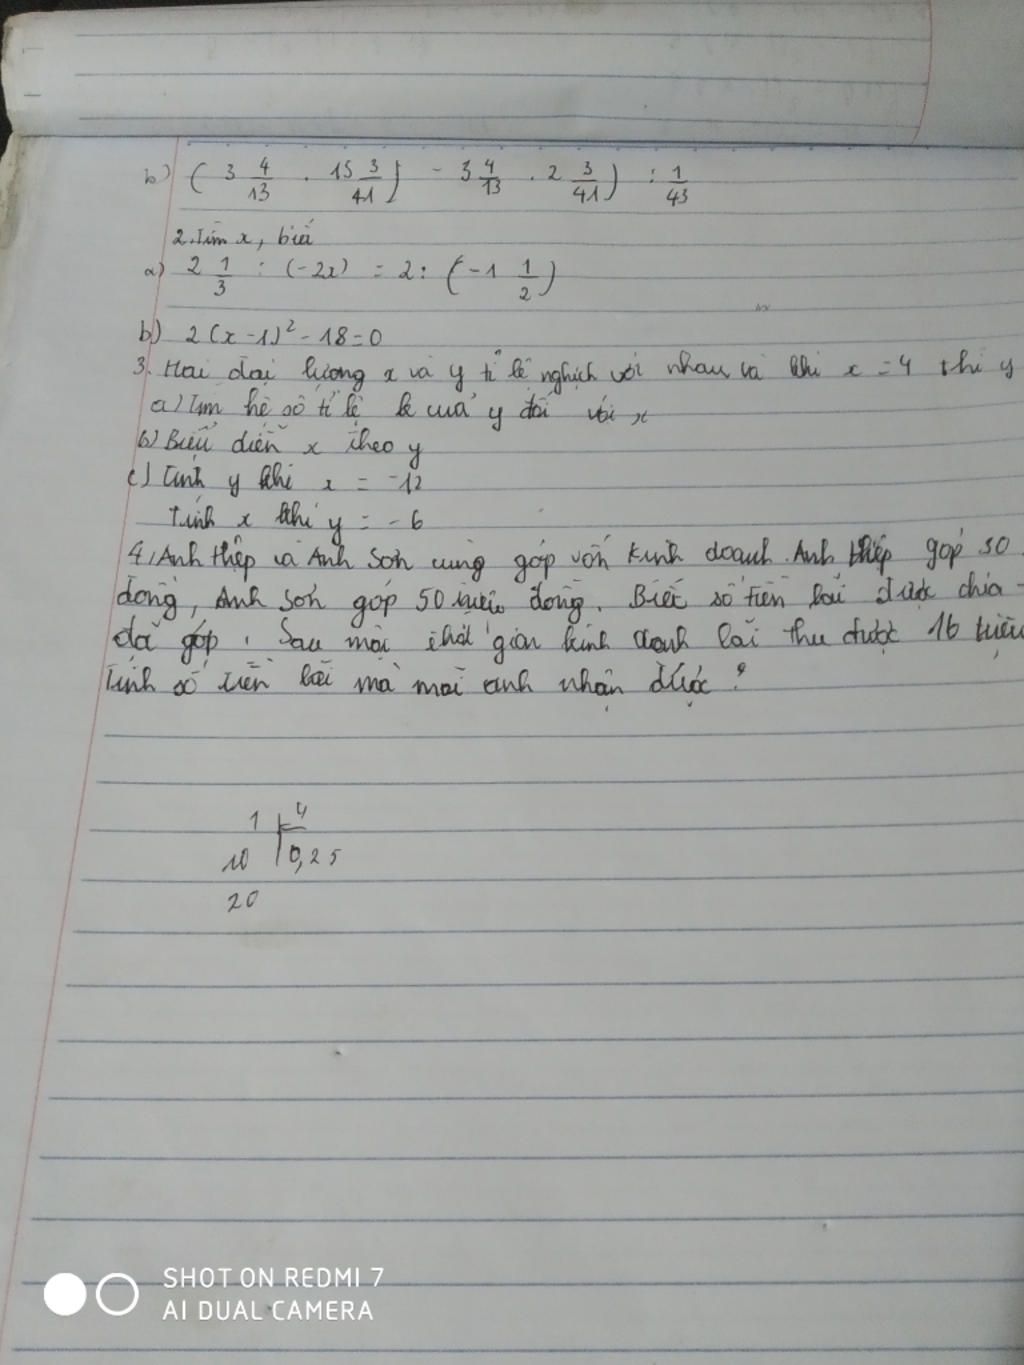 b) ( 3 4/13 . 15 3/41 ] - 3 4/13 . 2 3/41 ) : 1/43
2. Tìm x, biết
a) 2 1/3 : (-2x) = 2 : (-1 1/2)
b) 2(x-1)² - 18 = 0
3. Hai đại lượng x và y tỉ lệ nghịch với nhau và khi x = 4 thì y
a) Tìm hệ số tỉ lệ k của y đối với x
b) Biểu diễn x theo y
c) Tính y khi x = -12
Tính x khi y = -6
4, Anh thiệp và Anh Sơn cùng góp vốn kinh doanh. Anh thiệp góp 30
đồng, Anh Sơn góp 50 triệu đồng. Biết số tiền lãi được chia
đã góp. Sau một thời gian kinh doanh lãi thu được 16 triệu
Tính số tiền lãi mà mỗi anh nhận được?
1 4
10 0,25
20
SHOT ON REDMI 7
AI DUAL CAMERA